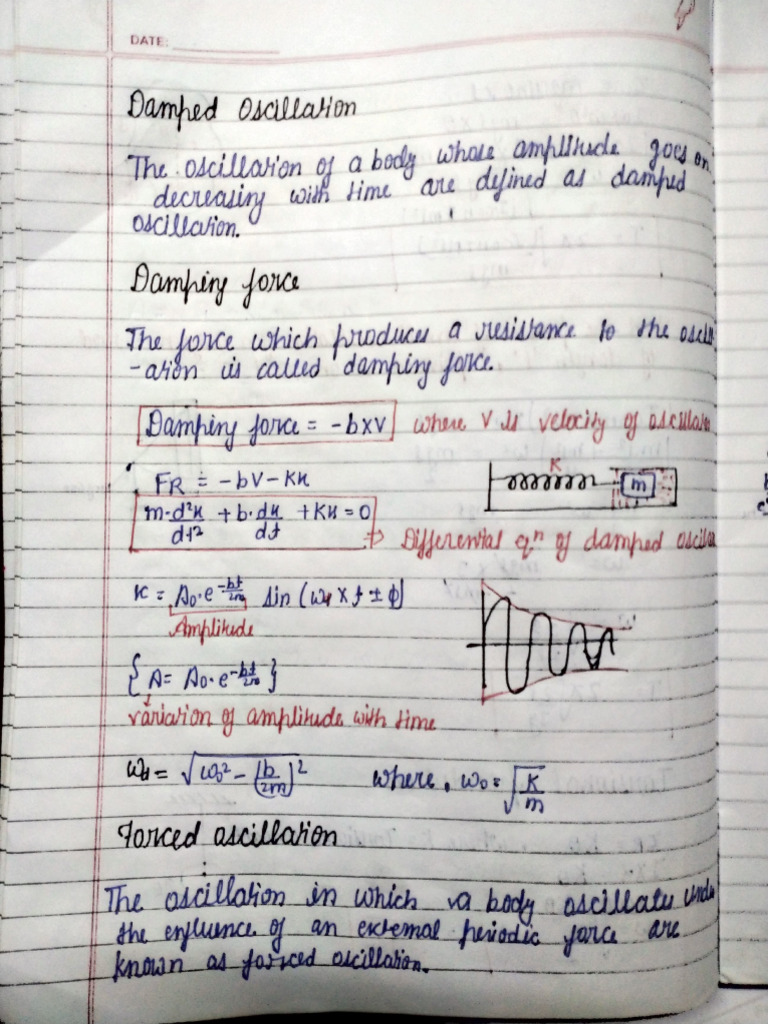 DATE:
Damped Oscillation
The oscillation of a body whose amplitude goes on
decreasing with time are defined as damped
oscillation.
Damping force
The force which produces a resistance to the oscill
-ation is called damping force.
Damping force = -b×v where v is velocity of oscillation
K
m
FR = -bv - Kx
m·d²x/dt² + b·dx/dt + Kx = 0
⇒ Differential eqⁿ of damped oscillation
x = A₀·e^(-bt/2m) sin (ωd × t ± ϕ)
Amplitude
{A = A₀·e^(-bt/2m)}
variation of amplitude with time
ωd = √(ω₀² - (b/2m)²) where, ω₀ = √(K/m)
Forced oscillation
The oscillation in which a body oscillate under
the influence of an external periodic force are
known as forced oscillation.